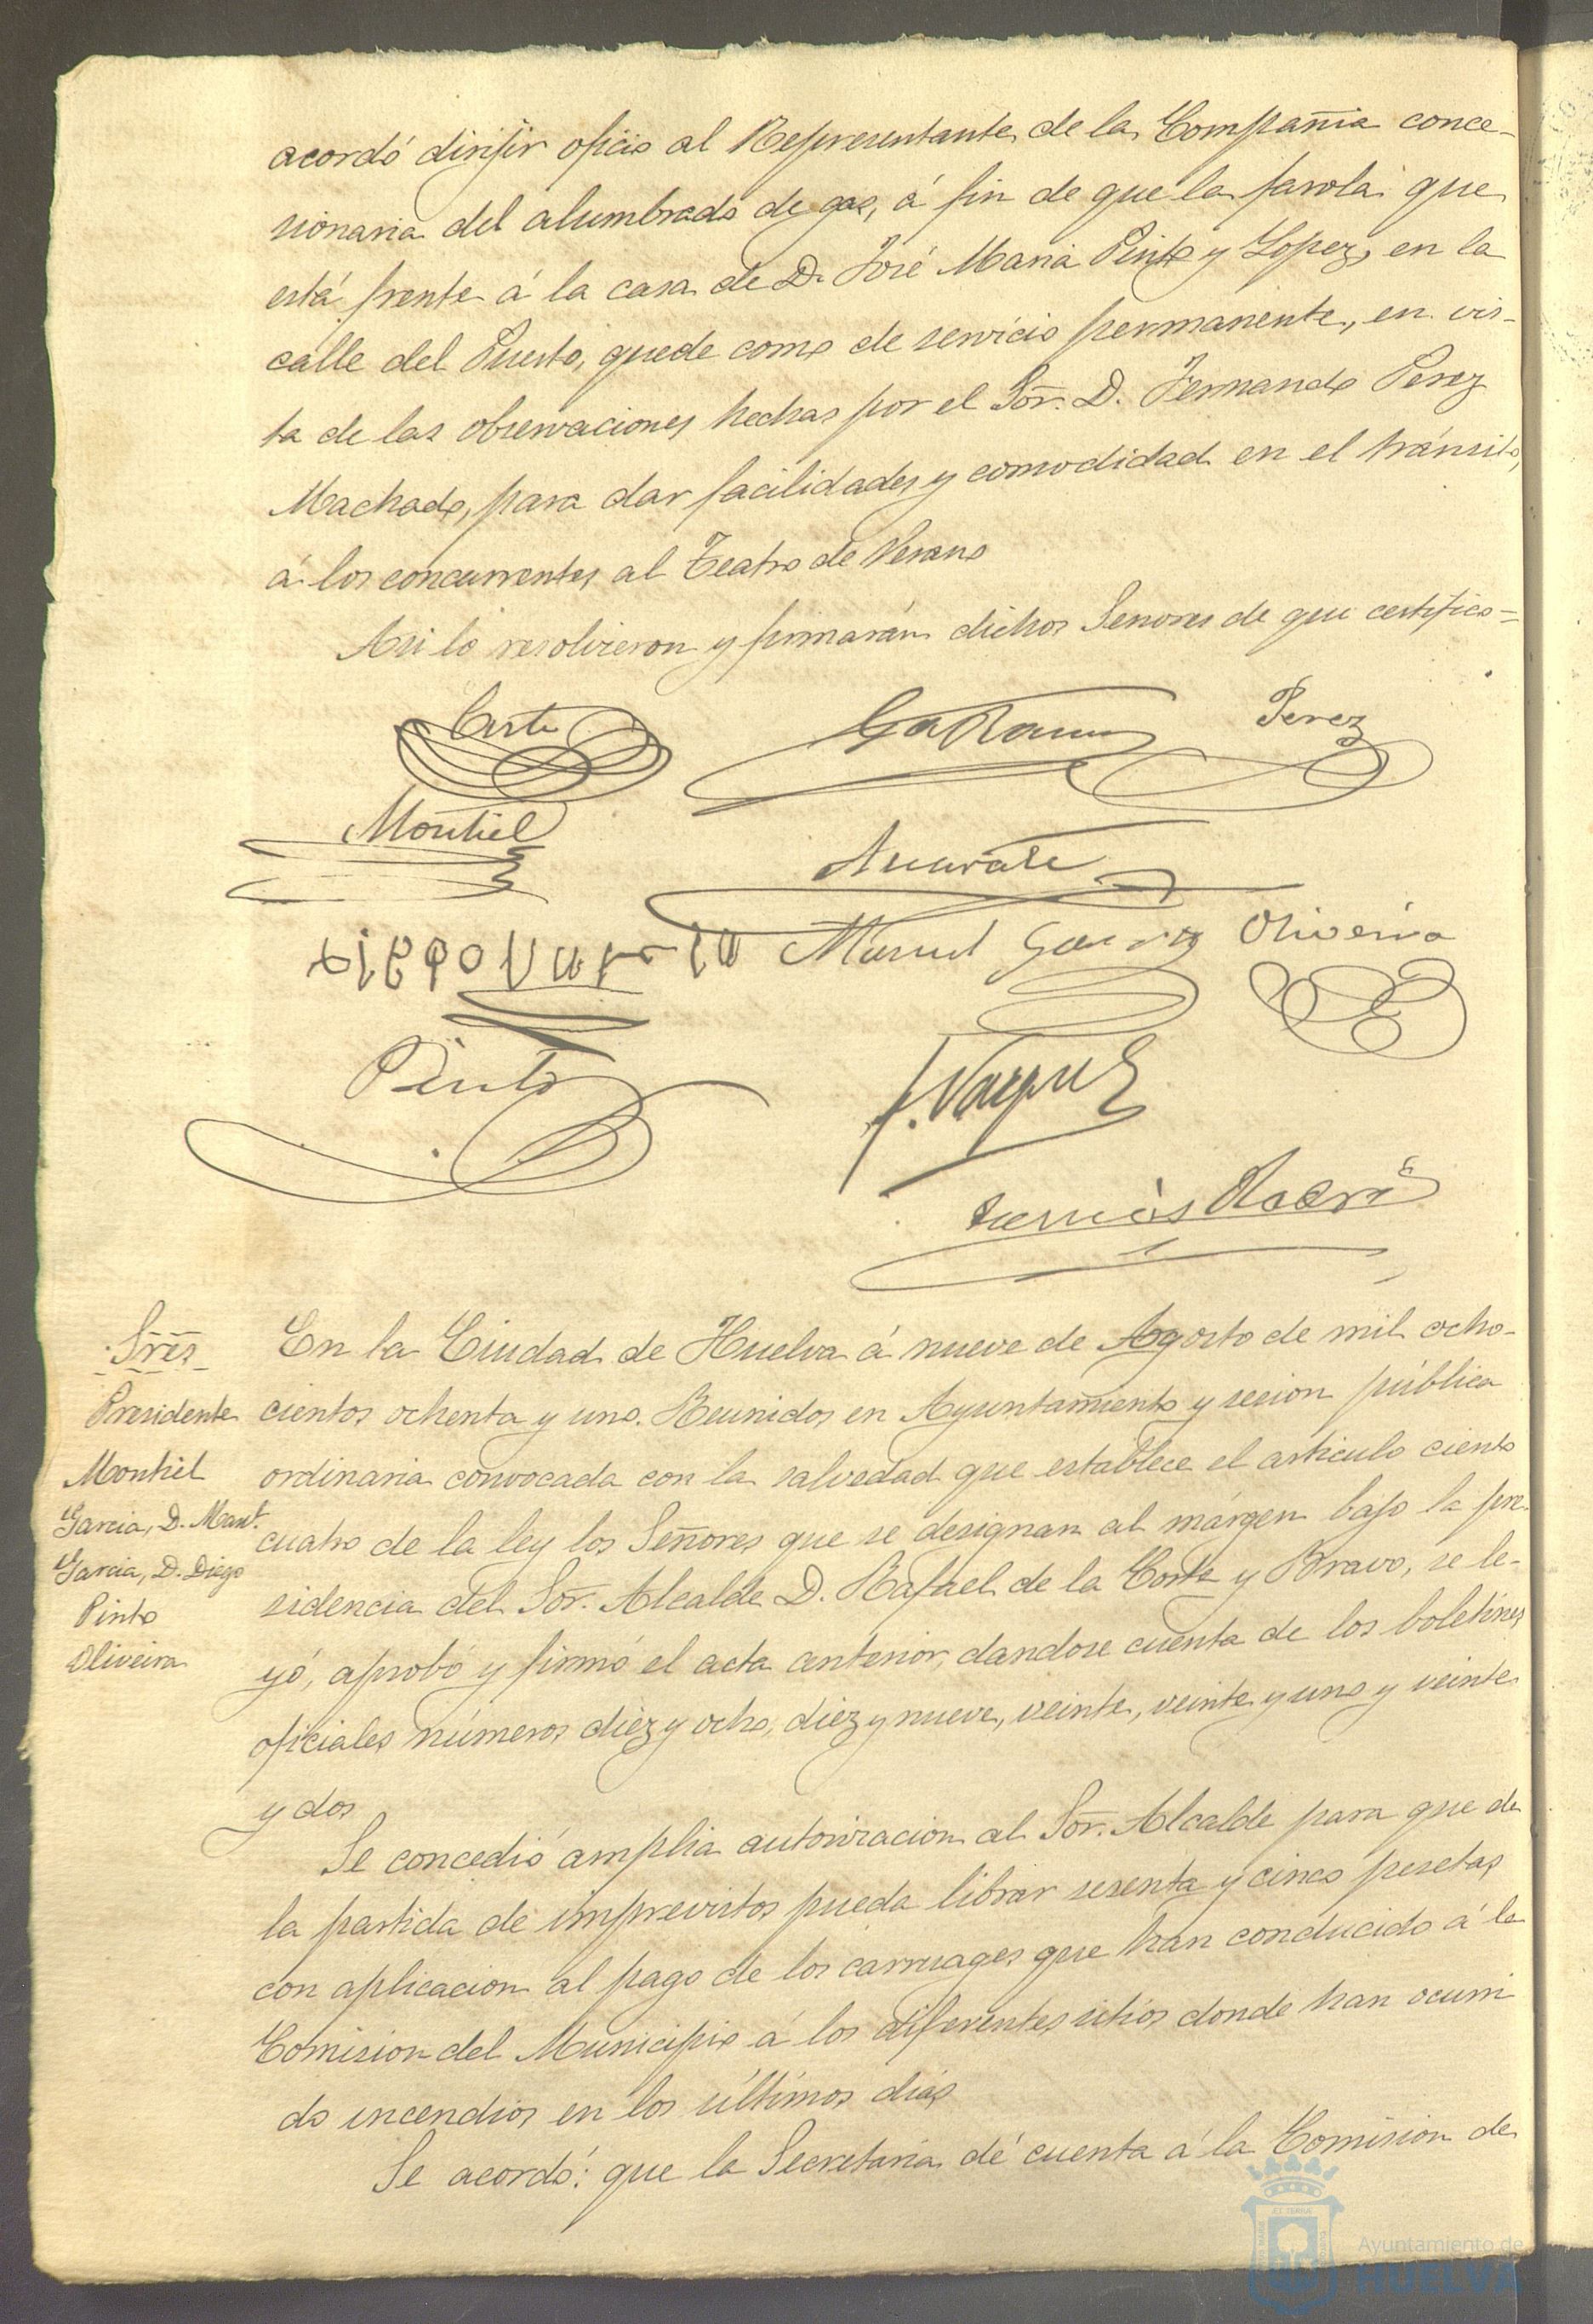 acordó dirijir oficio al Representante de la Compañia conce-
sionaria del alumbrado de gas, á fin de que la farola que
está frente á la casa de D. José Maria Pinto y Lopez, en la
calle del Puerto, quede como de servicio permanente, en vis-
ta de las observaciones hechas por el Sor. D. Fernando Perez
Machado, para dar facilidades y comodidad en el tránsito,
á los concurrentes al Teatro de Verano
Asi lo resolvieron y firmarán dichos Señores de que certifico=
Corte
Perez
Montiel
Manuel Garcia Oliveira
Pinto
J. Vazquez
Sres
Presidente
Montiel
Garcia, D. Manl.
Garcia, D. Diego
Pinto
Oliveira
En la Ciudad de Huelva á nueve de Agosto de mil ocho-
cientos ochenta y uno. Reunidos en Ayuntamiento y sesion pública
ordinaria convocada con la salvedad que establece el artículo ciento
cuatro de la ley los Señores que se designan al márgen bajo la pre-
sidencia del Sor. Alcalde D. Rafael de la Corte y Bravo, se le-
yó, aprobó y firmó el acta anterior, dandose cuenta de los boletines
oficiales números diez y ocho, diez y nueve, veinte, veinte y uno y veinte
y dos
Se concedió amplia autorizacion al Sor. Alcalde para que de
la partida de imprevistos pueda librar sesenta y cinco pesetas
con aplicacion al pago de los carruages que han conducido á la
Comision del Municipio á los diferentes sitios donde han ocurri
do incendios en los últimos dias
Se acordó: que la Secretaria dé cuenta á la Comision de
Ayuntamiento de
HUELVA